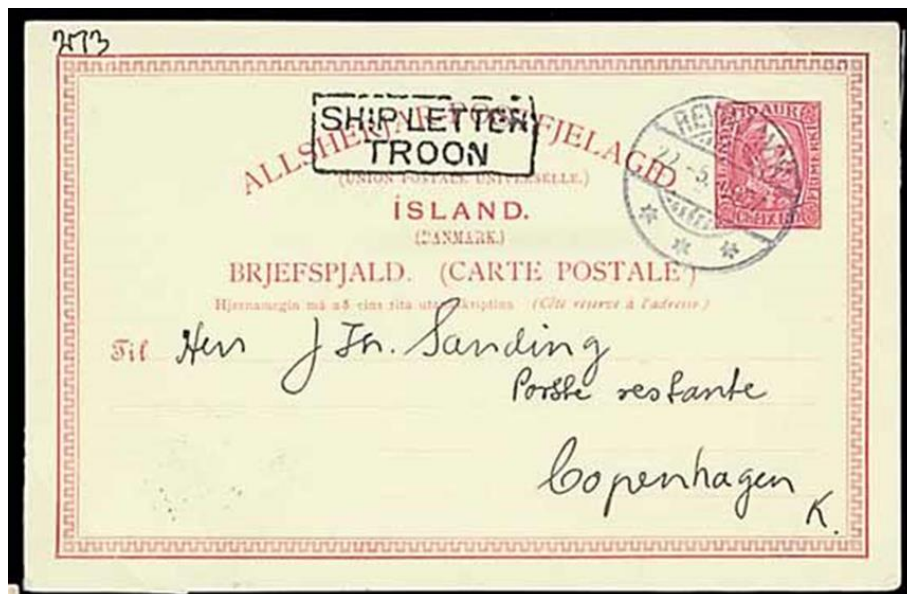 2773
SHIP LETTER
TROON
ALLSHERJAR-PÓSTFJELAGID
(UNION POSTALE UNIVERSELLE.)
ÍSLAND.
(DANMARK.)
BRJEFSPJALD. (CARTE POSTALE)
Hjernamegin má að eins rita utanáskriptina (Côté réservé à l'adresse.)
Til Herr J Fr. Sanding
Porste restante
Copenhagen
K.